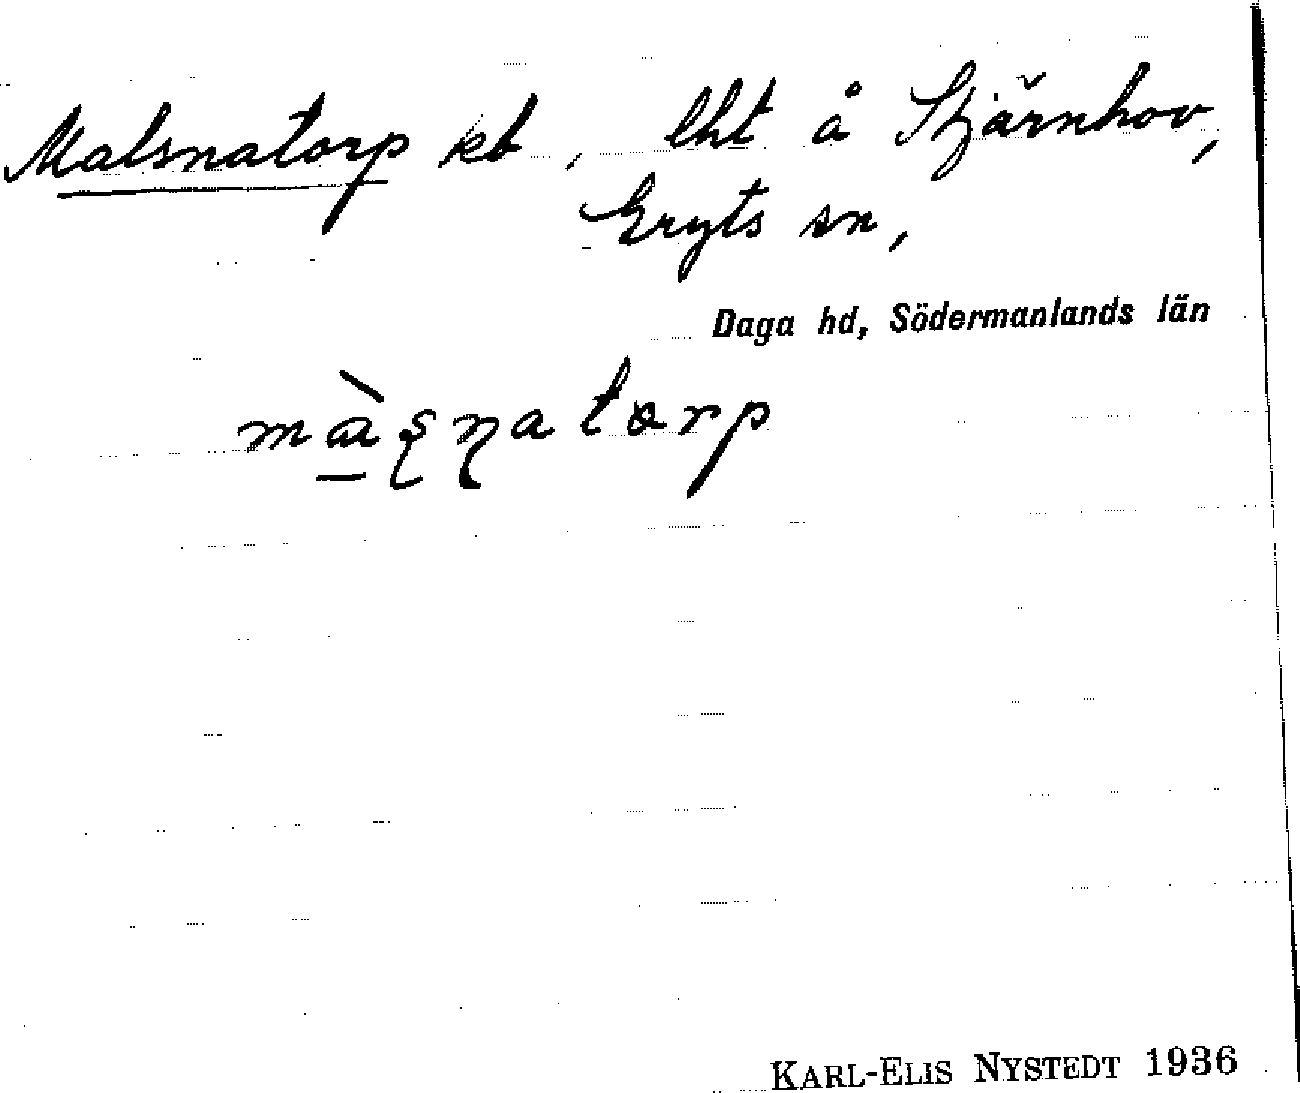 Malsnatorp kt, lht å Stjärnhov,
Gryts sn,
Daga hd, Södermanlands län
màʂɳatorp
KARL-ELIS NYSTEDT 1936